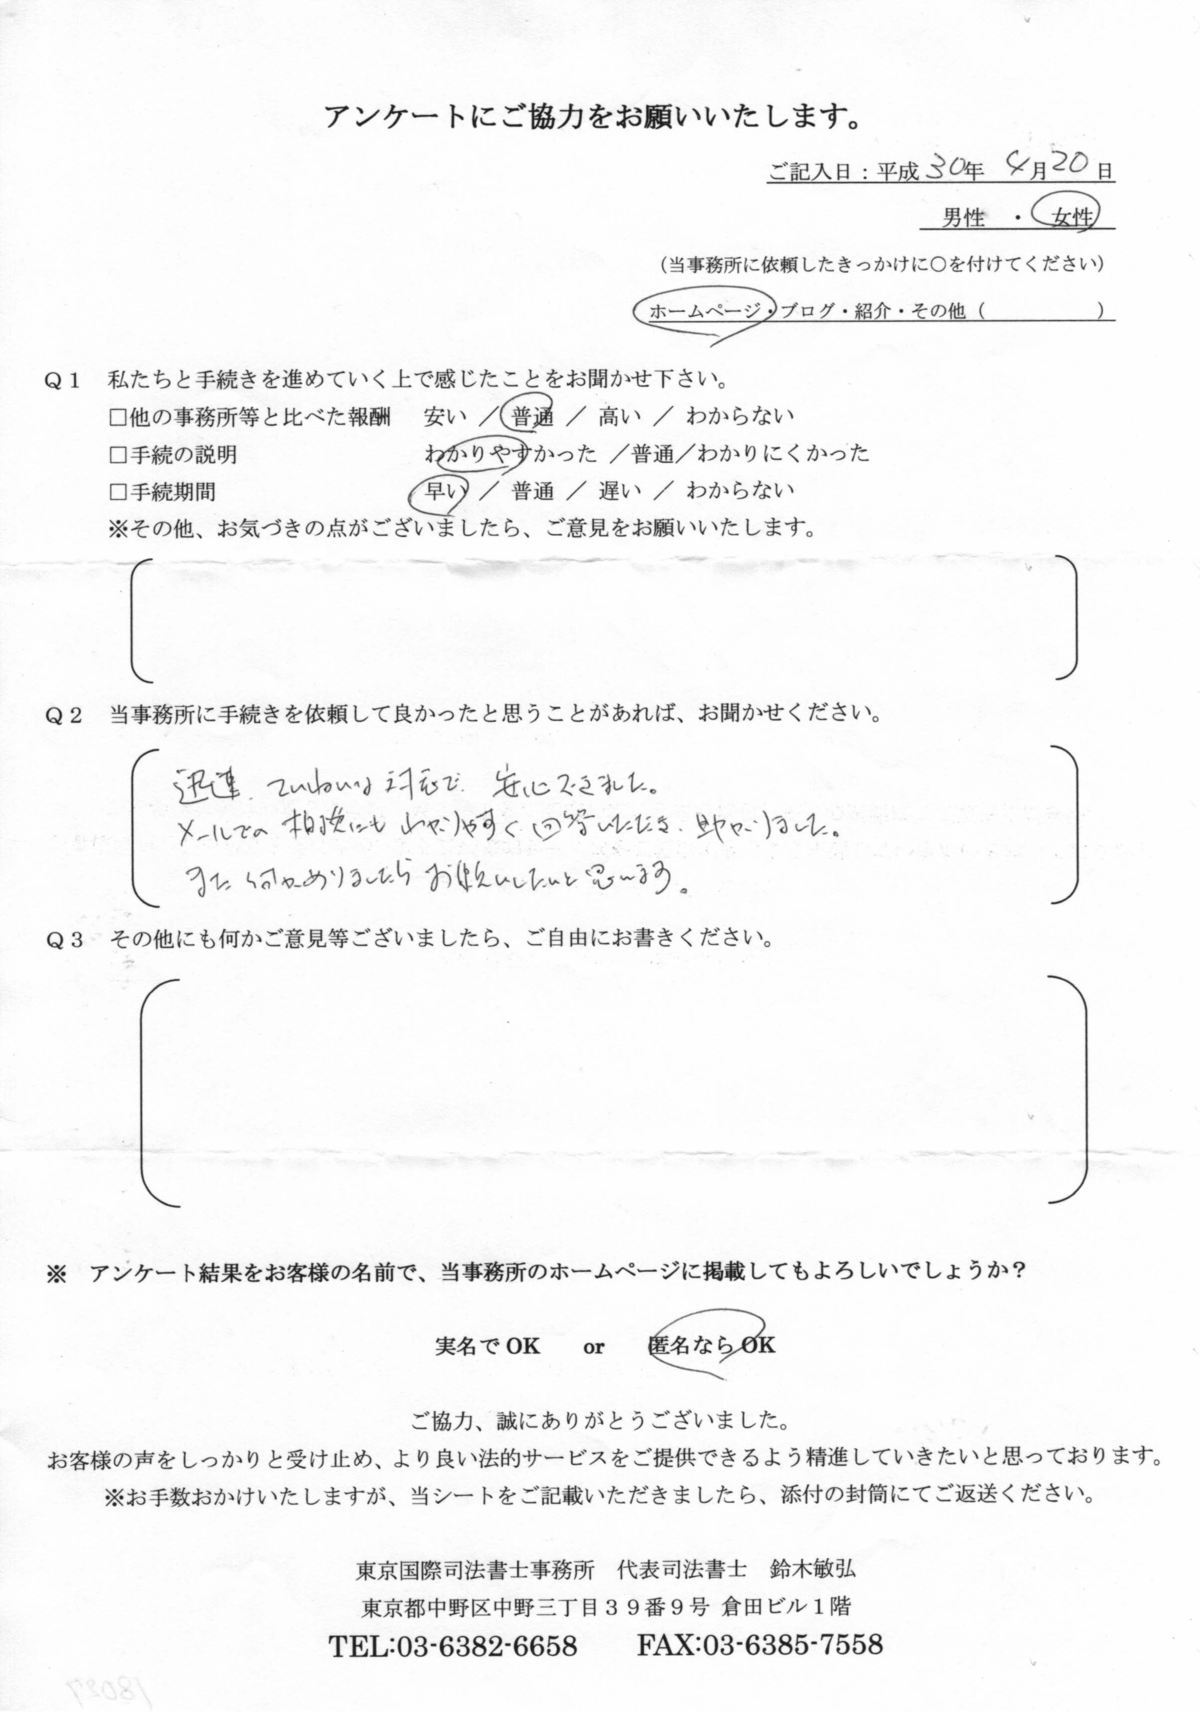 アンケートにご協力をお願いいたします。
ご記入日：平成 30年 4月20日
男性 ・ 女性
（当事務所に依頼したきっかけに○を付けてください）
ホームページ・ブログ・紹介・その他（ ）
Ｑ１ 私たちと手続きを進めていく上で感じたことをお聞かせ下さい。
□他の事務所等と比べた報酬 安い ／ 普通 ／ 高い ／ わからない
□手続の説明 わかりやすかった ／普通／わかりにくかった
□手続期間 早い ／ 普通 ／ 遅い ／ わからない
※その他、お気づきの点がございましたら、ご意見をお願いいたします。
Ｑ２ 当事務所に手続きを依頼して良かったと思うことがあれば、お聞かせください。
迅速、ていねいな対応で、安心できました。
メールでの相談にもわかりやすく回答いただき、助かりました。
また何かありましたらお願いしたいと思います。
Ｑ３ その他にも何かご意見等ございましたら、ご自由にお書きください。
※ アンケート結果をお客様の名前で、当事務所のホームページに掲載してもよろしいでしょうか？
実名で OK or 匿名なら OK
ご協力、誠にありがとうございました。
お客様の声をしっかりと受け止め、より良い法的サービスをご提供できるよう精進していきたいと思っております。
※お手数おかけいたしますが、当シートをご記載いただきましたら、添付の封筒にてご返送ください。
東京国際司法書士事務所 代表司法書士 鈴木敏弘
東京都中野区中野三丁目３９番９号 倉田ビル１階
TEL:03-6382-6658 FAX:03-6385-7558